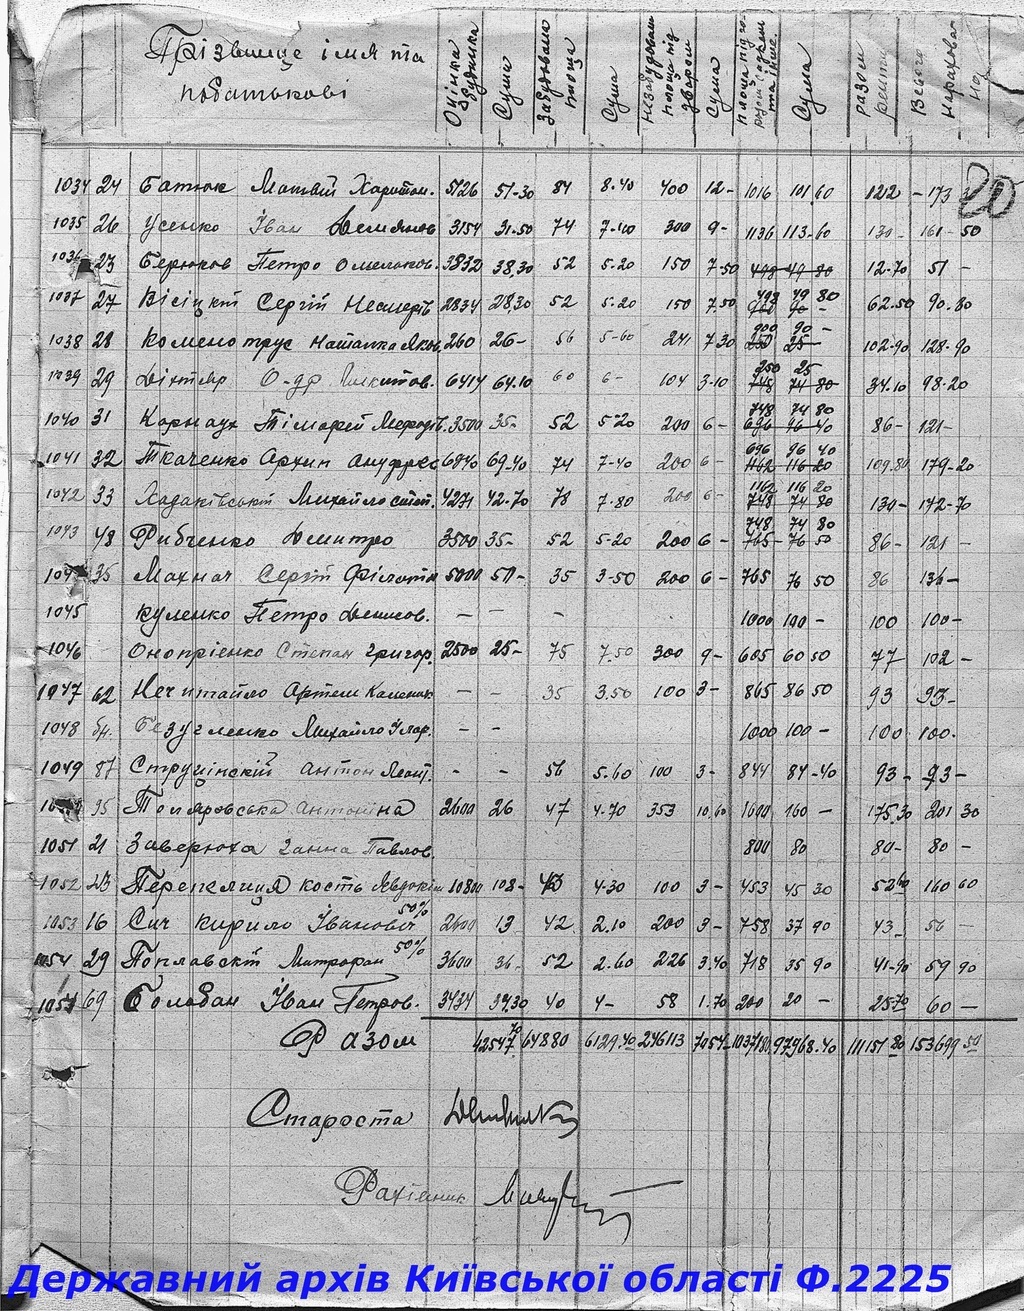 Прізвище імя та
побатькові
Оцінка будинка
Сума
Забудована площа
Сума
Незабудована площа під двором
Сума
Сума
разом рента
Всього
Нарахова-но
20
1034 24 Батюк Матвій Харитон. 5126 51-30 84 8.40 400 12- 1016 101 60 1212 - 173
1035 26 Усенко Іван Демянов 3154 31.50 74 7-40 300 9- 1136 113-60 130- 161-50
23 Берюков Петро Омельков. 3832 38,30 52 5-20 150 7-50 498 49 80 12-70 51 -
1037 27 Вісіцкій Сергій 2834 28,30 52 5-20 150 7.50 498 49 80 62.50 90.80
1038 28 Каменотрус Наталка Яков. 260 26- 56 5-60 241 7.30 900 90 - 102-90 128-90
1039 29 Діхтяр 6414 64.10 60 6- 104 3-10 250 25 34.10 98-20
1040 31 Карнаух Тімофей Мефодів. 3500 35- 52 5-20 200 6- 748 74 80 86- 121-
1041 32 Ткаченко Архип Ануфрев 6940 69.40 74 7-40 200 6- 696 96 40 109.80 179-20
1042 33 Хадаківській Михайло 4271 42-70 78 7.80 200 6- 1162 116 20 130- 172-70
1043 48 Рибченко Дмитро 3500 35- 52 5-20 200 6- 748 74 80 86- 121 -
35 Махнач Сергій 5000 50- 35 3-50 200 6- 765 76 50 86 136-
1045 Куленко Петро Денисов. - - - 1000 100- 100 100-
1046 Онопрієнко Степан Григор. 2500 25- 75 7.50 300 9- 605 60 50 77 102 -
1047 62 Нечитайло Артем Каленик - - 35 3.50 100 3- 865 86 50 93 93-
1048 бн. Безугленко Михайло Ілар. - - 1000 100- 100 100.
1049 87 Струцінскій Антон Леонт. - - 56 5.60 100 3- 844 84-40 93- 93-
95 Томяровська Антоніна 2600 26 47 4.70 353 10.60 1600 160 - 175.30 201 30
1051 21 Заверюха Ганна Павлов. 800 80 80- 80 -
1052 23 Перепелиця Кость Явдоким 10800 108- 43 4-30 100 3- 453 45 30 52 60 160 60
1053 16 Сич Кирило Іванович 50% 2600 13 42 2.10 200 3- 758 37 90 43- 56 -
1054 29 Поплавскій Митрофан 50% 3600 36- 52 2.60 226 3.40 718 35 90 41-90 59 90
69 Болобан Іван Петров. 3434 34,30 40 4- 58 1.70 200 20 - 25 70 60 -
Разом 42547 70 64880 6129.40 246113 7054- 1037180 97968.40 111151 80 153699 50
Староста
Рахівник
Державний архів Київської області Ф.2225